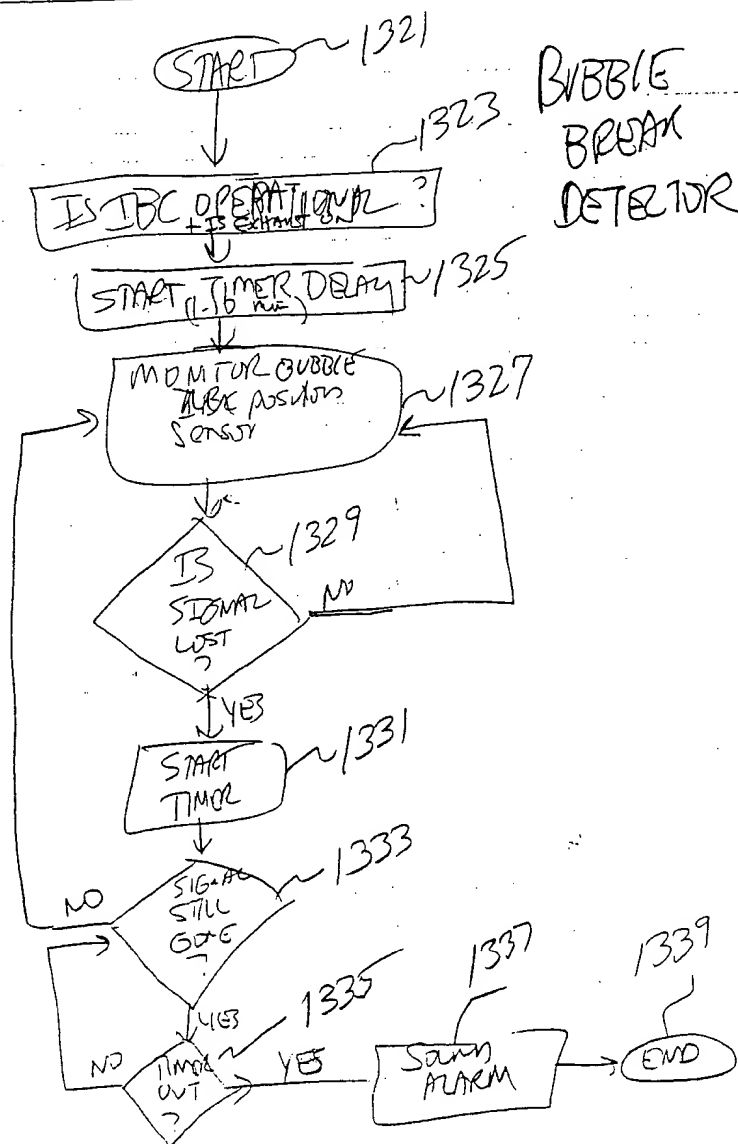 START
1321
BUBBLE
BREAK
DETECTOR
1323
IS IBC OPERATIONAL ?
+ IS EXHAUST ON
START TIMER DELAY
1325
MONITOR BUBBLE
POSITION
SENSOR
1327
IS
SIGNAL
LOST
?
1329
NO
YES
START
TIMER
1331
SIGNAL
STILL
GONE
?
1333
NO
YES
TIMER
OUT
?
1335
NO
YES
SOUND
ALARM
1337
END
1339